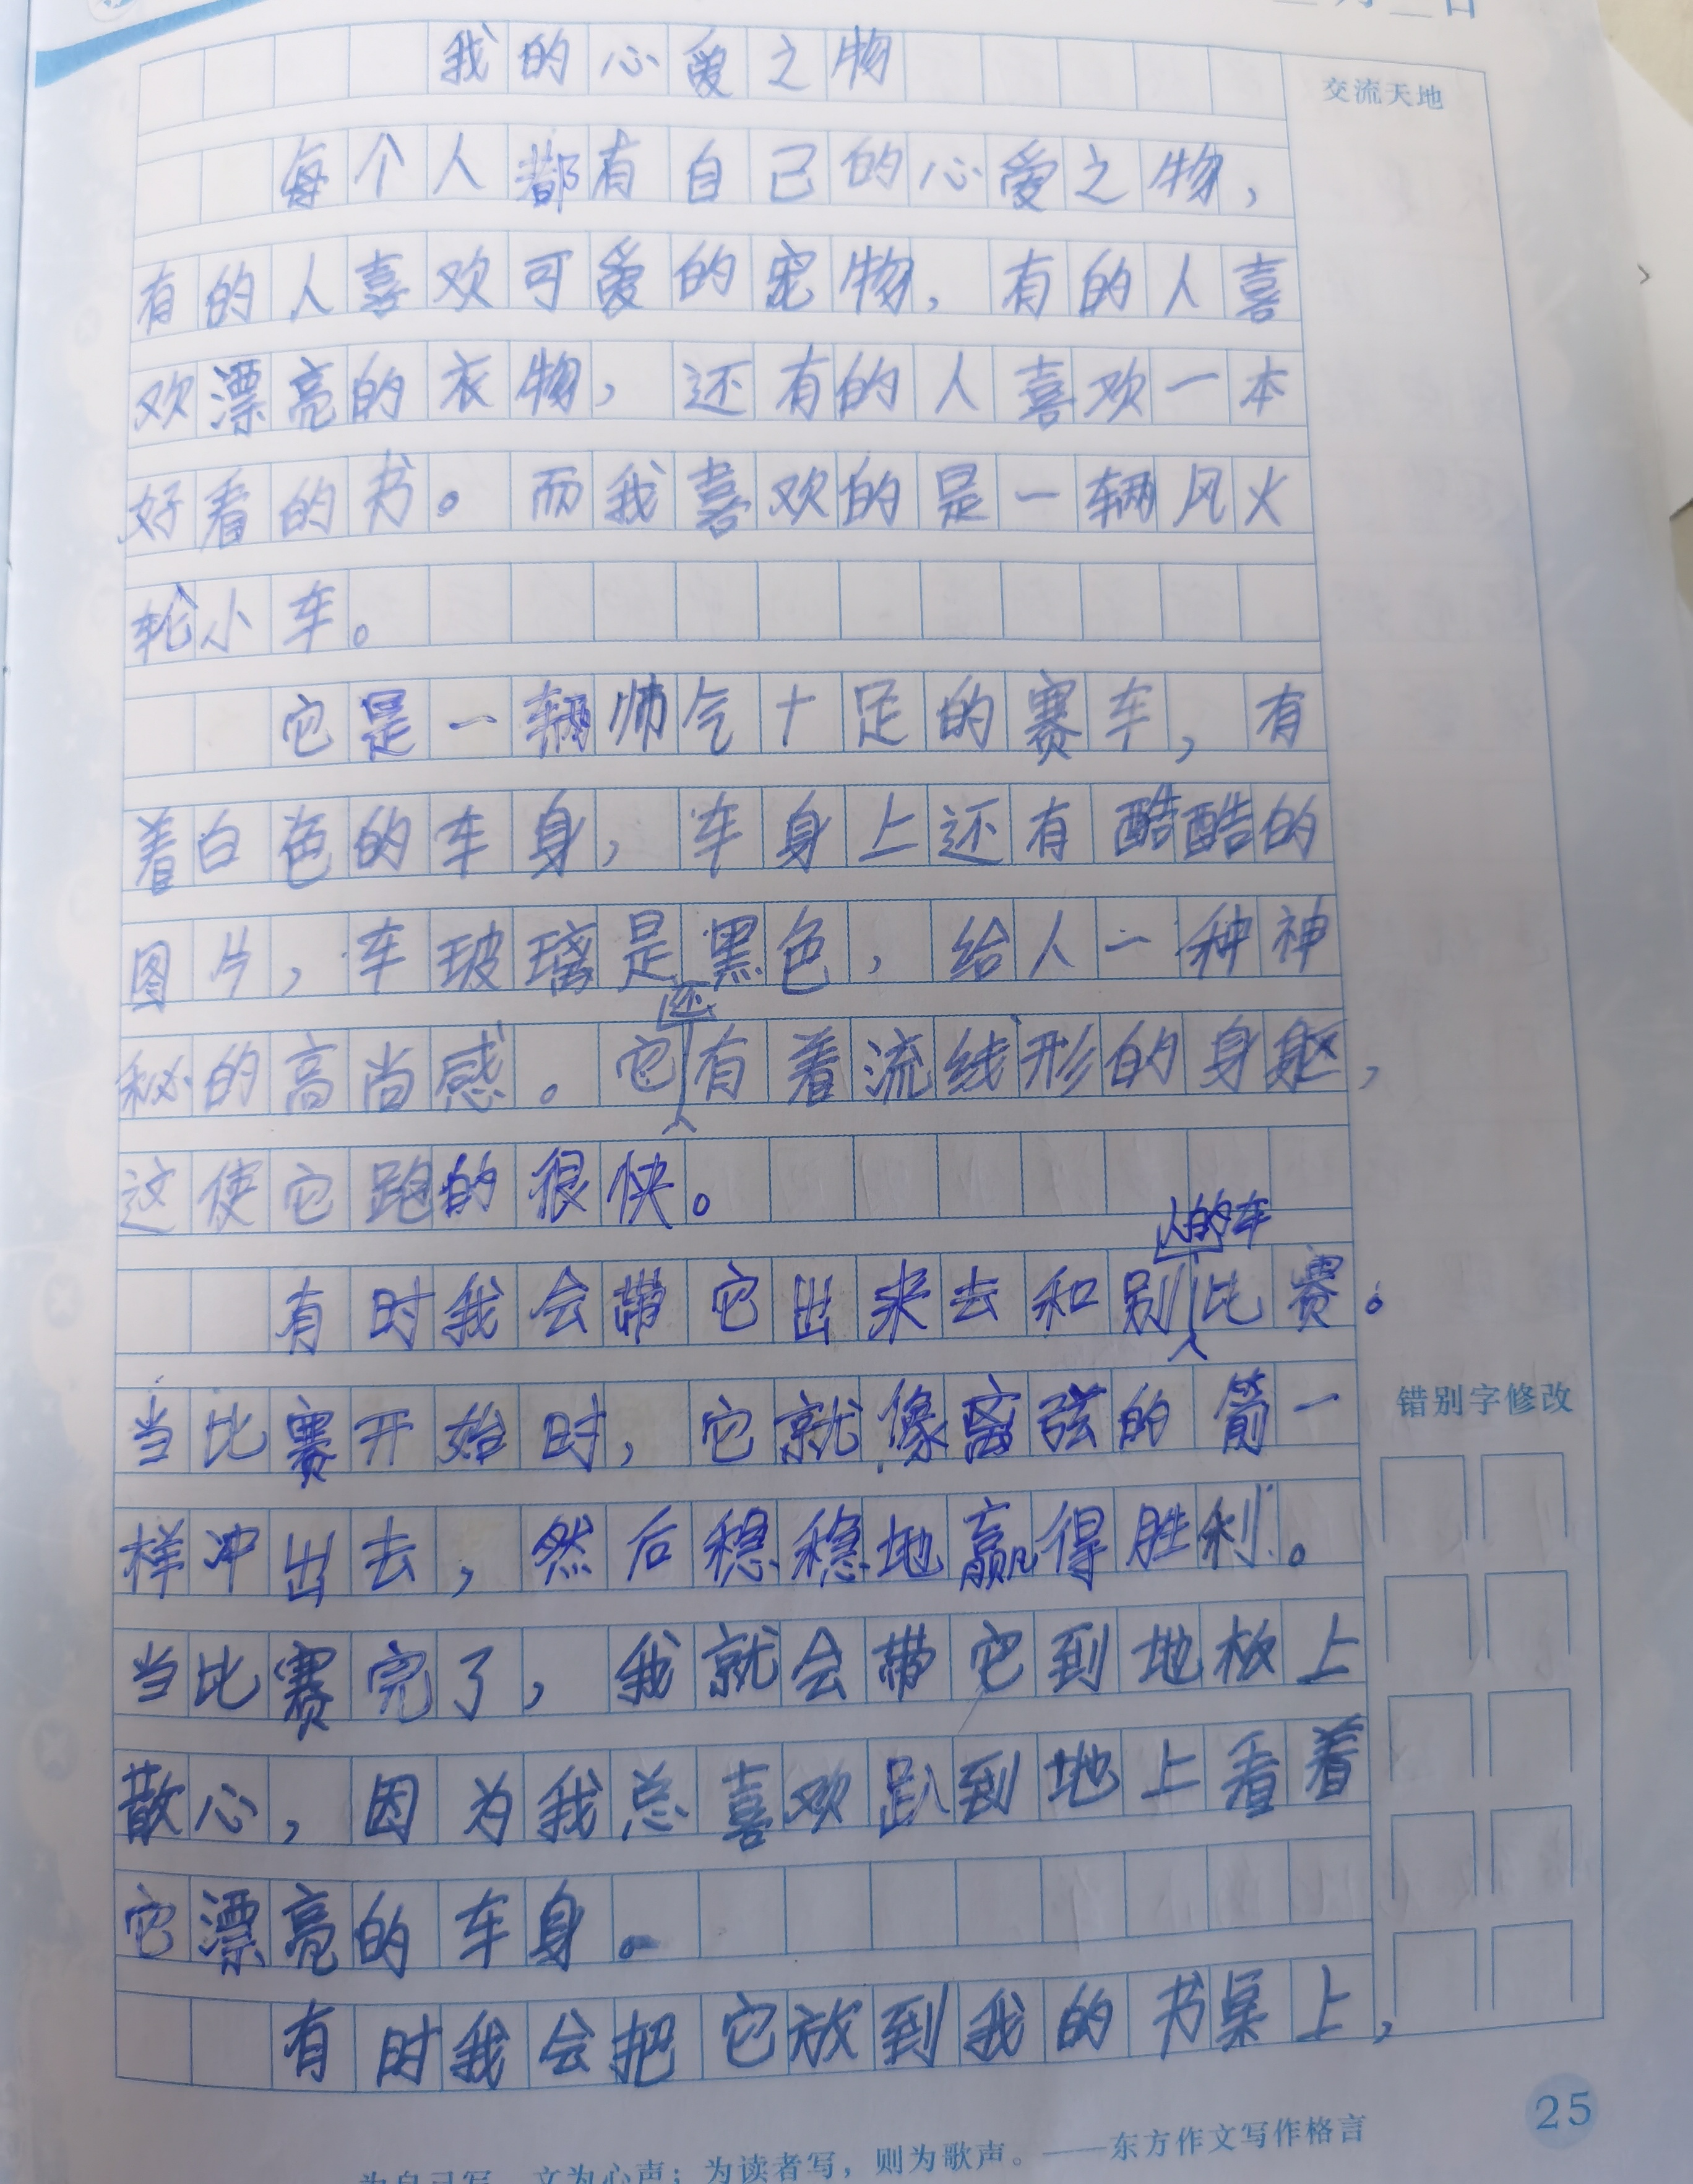 月 日
我的心爱之物
交流天地
每个人都有自己的心爱之物，
有的人喜欢可爱的宠物，有的人喜
欢漂亮的衣物，还有的人喜欢一本
好看的书。而我喜欢的是一辆风火
轮小车。
它是一辆帅气十足的赛车，有
着白色的车身，车身上还有酷酷的
图片，车玻璃是黑色，给人一种神
秘的高尚感。它还有着流线形的身躯，
这使它跑的很快。
有时我会带它出来去和别人的车比赛。
当比赛开始时，它就像离弦的箭一
错别字修改
样冲出去，然后稳稳地赢得胜利。
当比赛完了，我就会带它到地板上
散心，因为我总喜欢趴到地上看着
它漂亮的车身。
有时我会把它放到我的书桌上，
25
为自己写，文为心声；为读者写，则为歌声。——东方作文写作格言